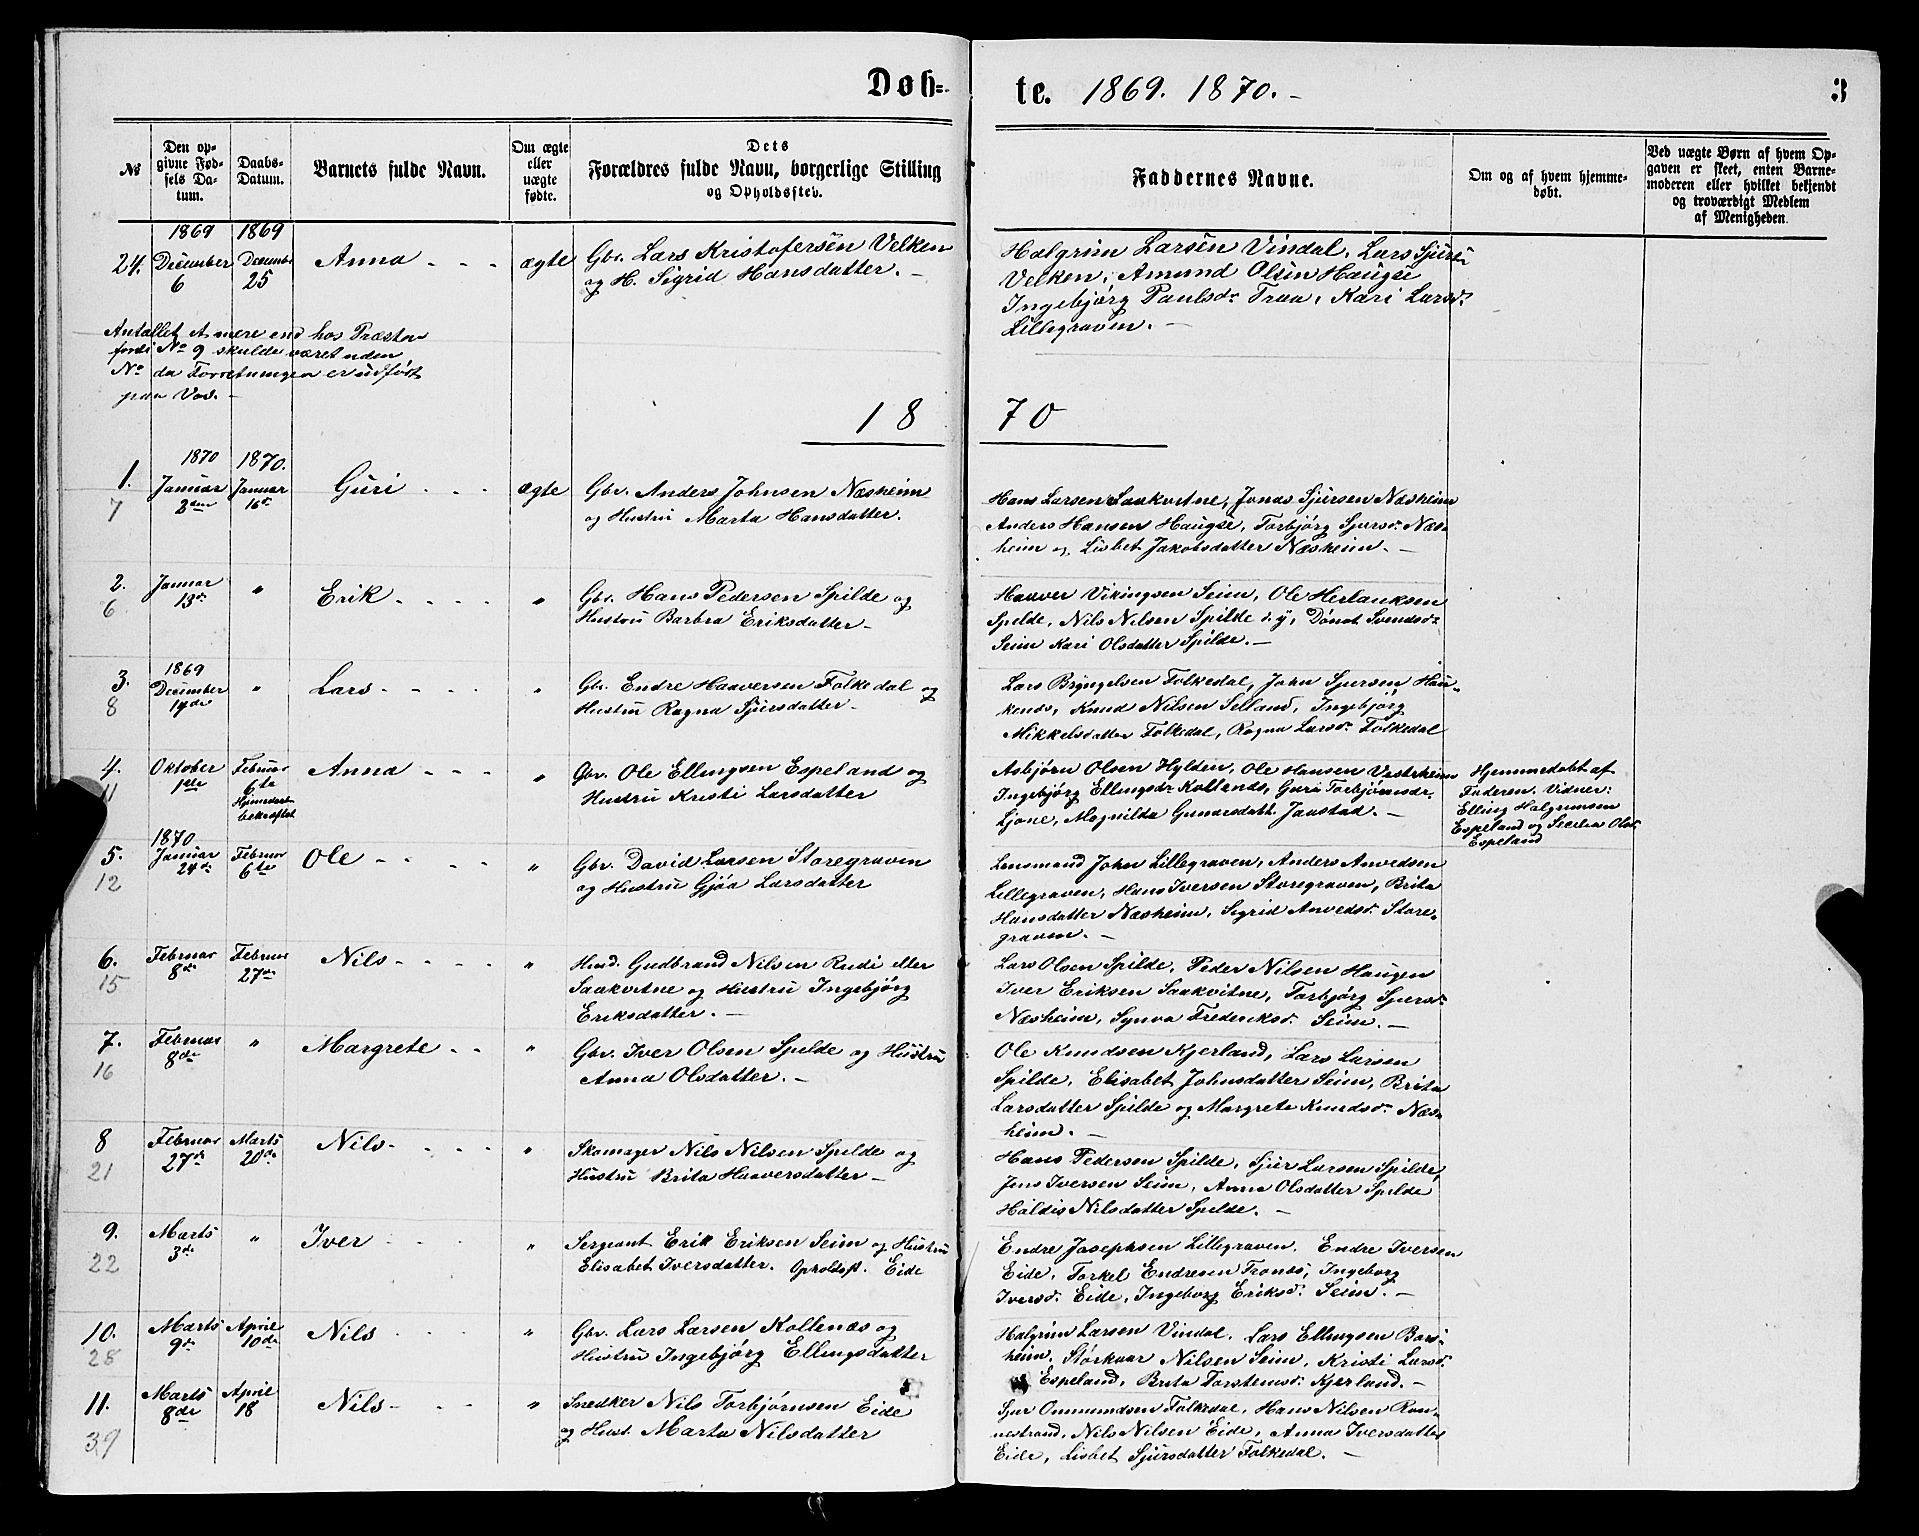 Døb=
te. 1869. 1870. –
3
№
Den op-
givne Fød-
sels Da-
tum.
Daabs-
Datum.
Barnets fulde Navn.
Om ægte
eller
uægte
fødte.
Dets
Forældres fulde Navn, borgerlige Stilling
og Opholdssted.
Faddernes Navne.
Om og af hvem hjemme-
døbt.
Ved uægte Børn af hvem Op-
gaven er skeet, enten Barne-
moderen eller hvilket bekjendt
og troværdigt Medlem
af Menigheden.
1869 1869
24. December 6 Decembr 25 Anna - - - ægte
Gbr. Lars Kristofersen Velken
og H. Sigrid Hansdatter. –
Halgrim Larsen Vindal, Lars Sjurs:
Velken, Amund Olsen Haugse
Ingebjørg Paulsdr Traa, Kari Larsd:
Lillegraven. –
Antallet et mere end hos Præsten
fordi No 9 skulde været uden
No da Forretningen er udført
paa Vos. –
18 70
1870 1870.
1. 7 Januar 2den Januar 16de Guri - - - ægte
Gbr. Anders Johnsen Næsheim
og Hustru Marta Hansdatter.
Hans Larsen Saakvitne, Jonas Sjursen Næsheim
Anders Hansen Haugse, Torbjørg Sjursd: Næs-
heim og Lisbet Jakobsdatter Næsheim. –
2. 6 Januar 13de " Erik - - - - "
Gbr. Hans Pedersen Spilde og
Hustru Barbra Eriksdatter –
Haaver Vikingsen Seim, Ole Herlauksen
Spilde, Nils Nilsen Spilde d.y, Dønot Svendsd:
Seim Kari Olsdatter Spilde. –
1869
3. 8 December 14de " Lars - - - - "
Gbr. Endre Haaversen Folkedal og
Hustru Ragna Sjursdatter –
Lars Bryngelsen Folkedal, John Sjursen Hau-
kenes, Knud Nilsen Selland, Ingebjørg
Mikkelsdatter Folkedal, Ragna Larsd: Folkedal
4. 11 Oktober 1ste Februar 6te Hjemmedaab bekræftet Anna - - - "
Gbr. Ole Ellingsen Espeland og
Hustru Kristi Larsdatter
Asbjørn Olsen Hylden, Ole Hansen Vestrheim
Ingebjørg Ellingsdr Kollenes, Guri Torbjørnsdr
Ljone, Magnilda Gunarsdatt. Jaastad. –
Hjemmedøbt af
Faderen. Vidner:
Elling Halgrimsen
Espeland og Sicilia Olsd:
Espeland
1870
5. 12 Januar 24de Februar 6te Ole - - - - "
Gbr. David Larsen Storegraven
og Hustru Gjøa Larsdatter
Lensmand John Lillegraven, Anders Arnedsen
Lillegraven, Hans Iversen Storegraven, Brita
Hansdatter Næsheim, Sigrid Arnedsd: Store-
graven. –
6. 15 Februar 8de Februar 27de Nils - - - - "
Husd. Gudbrand Nilsen Rudi eller
Saakvitne og Hustru Ingebjørg
Eriksdatter. –
Lars Olsen Spilde, Peder Nilsen Haugen
Iver Eriksen Saakvitne, Torbjørg Sjursd:
Næsheim, Synva Frederiksd: Seim. –
7. 16 Februar 8de " Margrete - - "
Gbr. Iver Olsen Spilde og Hustru
Anna Olsdatter. –
Ole Knudsen Kjerland, Lars Larsen
Spilde, Elisabet Johnsdatter Seim, Brita
Larsdatter Spilde og Margreta Knudsd: Næs-
heim. –
8 21 Februar 27de Marts 20de Nils - - - - "
Skomager Nils Nilsen Spilde og
Hustru Brita Haaversdatter –
Hans Pedersen Spilde, Sjur Larsen Spilde,
Jens Iversen Seim, Anna Olsdatter Spilde
Haldis Nilsdatter Spilde. –
9. 22 Marts 3de " Iver - - - "
Sergeant Erik Eriksen Seim og Hustru
Elisabet Iversdatter. Opholdsst. Eide
Endre Josephsen Lillegraven, Endre Iversen
Eide, Torkel Endresen Tronæs, Ingeborg
Iversd: Eide, Ingeborg Eriksd: Seim. –
10. 28 Marts 9de April 10de Nils - - - "
Gbr. Lars Larsen Kollenæs og
Hustru Ingebjørg Ellingsdatter
Halgrim Larsen Vindal, Lars Ellingsen Bars-
heim, Størkaar Nilsen Seim, Kristi Larsd:
Espeland, Brita Torstensd: Kjerland. –
11. 39 Marts 8de April 18 Nils - - - "
Snedker Nils Torbjørnsen Eide
og Hust. Marta Nilsdatter
Sjur Onmundsen Folkedal, Hans Nilsen Ron-
nestrand, Nils Nilsen Eide, Anna Iversdatter
Eide, Lisbet Sjursdatter Folkedal. –